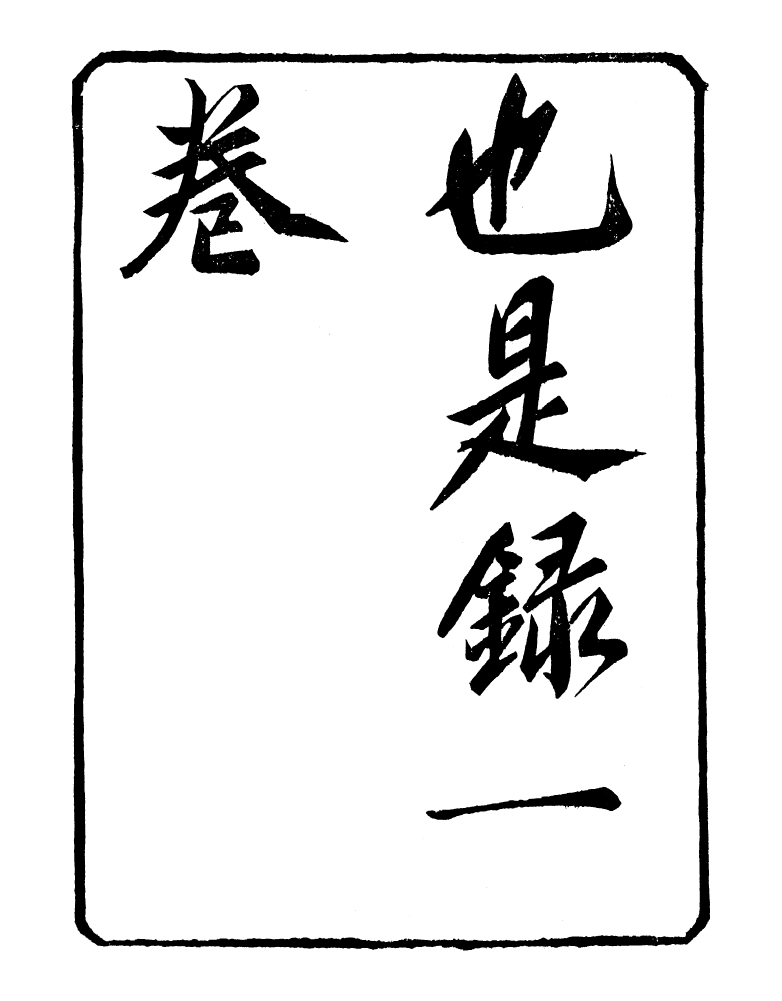 也是録一
卷